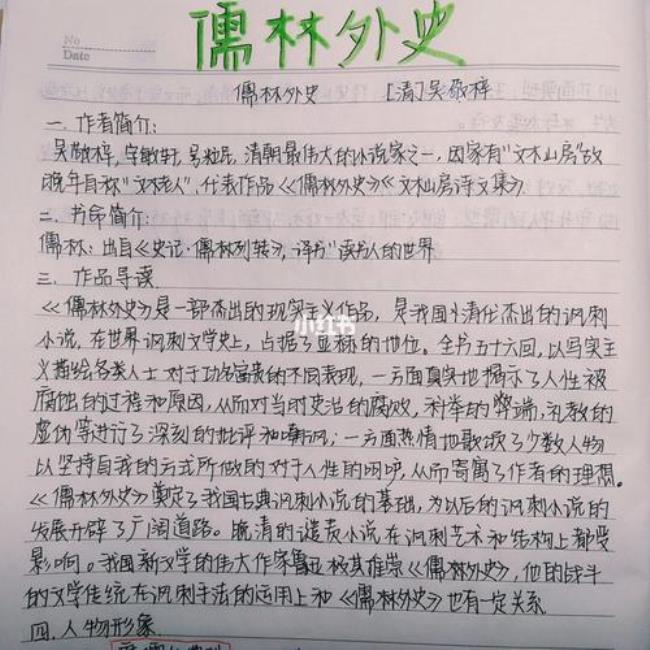 儒林外史
No
Date
儒林外史 [清]吴敬梓
一. 作者简介:
吴敬梓,字敏轩,号粒民,清朝最伟大的小说家之一,因家有"文木山房"故
晚年自称"文木老人".代表作品《儒林外史》《文木山房诗文集》.
二. 书命简介:
儒林: 出自《史记·儒林列转》,译书"读书人的世界
三. 作品导读.
《儒林外史》是一部杰出的现实主义作品,是我国清代杰出的讽刺
小说,在世界讽刺文学史上,占据了显赫的地位。全书五十六回,以写实主
义描绘各类人士对于功名富贵的不同表现,一方面真实地揭示了人性被
腐蚀的过程和原因,从而对当时吏治的腐败,科举的弊端,礼教的
虚伪等进行了深刻的批评和嘲讽;一方面热情地歌颂了少数人物
以坚持自我的方式所做的对于人性的呵护,从而寄寓了作者的理想。
《儒林外史》奠定了我国古典讽刺小说的基础,为以后的讽刺小说的
发展开辟了广阔道路。晚清的谴责小说在讽刺艺术和结构上都受
影响。我国新文学的伟大作家鲁迅极其推崇《儒林外史》,他的战斗
的文学传统在讽刺手法的运用上和《儒林外史》也有一定关系
四. 人物形象
小红书